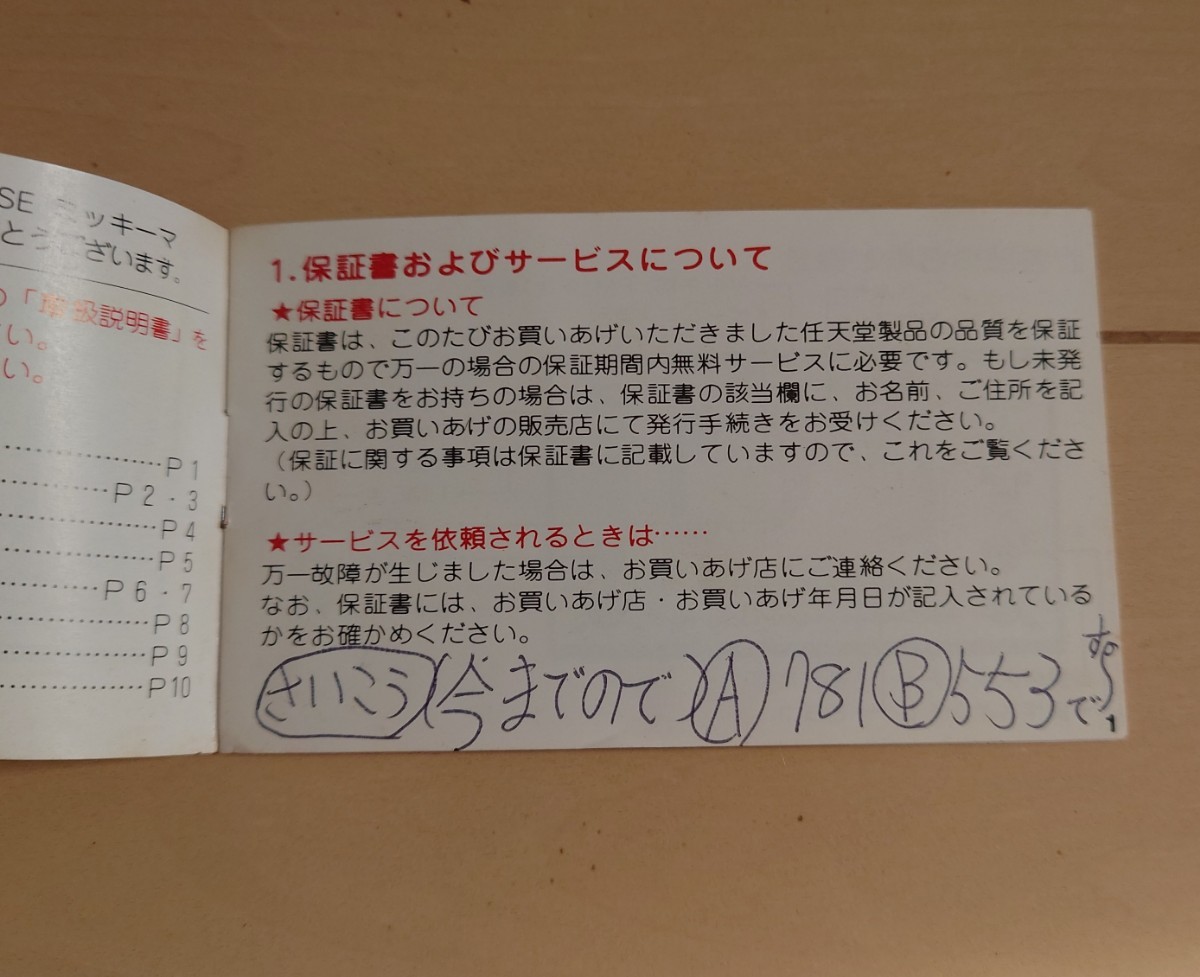 SE ミッキーマ
とうございます。
の「取扱説明書」を
さい。
い。
P1
P2・3
P4
P5
P6・7
P8
P9
P10
1.保証書およびサービスについて
★保証書について
保証書は、このたびお買いあげいただきました任天堂製品の品質を保証
するもので万一の場合の保証期間内無料サービスに必要です。もし未発
行の保証書をお持ちの場合は、保証書の該当欄に、お名前、ご住所を記
入の上、お買いあげの販売店にて発行手続きをお受けください。
(保証に関する事項は保証書に記載していますので、これをご覧くださ
い。)
★サービスを依頼されるときは……
万一故障が生じました場合は、お買いあげ店にご連絡ください。
なお、保証書には、お買いあげ店・お買いあげ年月日が記入されている
かをお確かめください。
さいこう(今までので)Ⓐ781Ⓑ553です
1